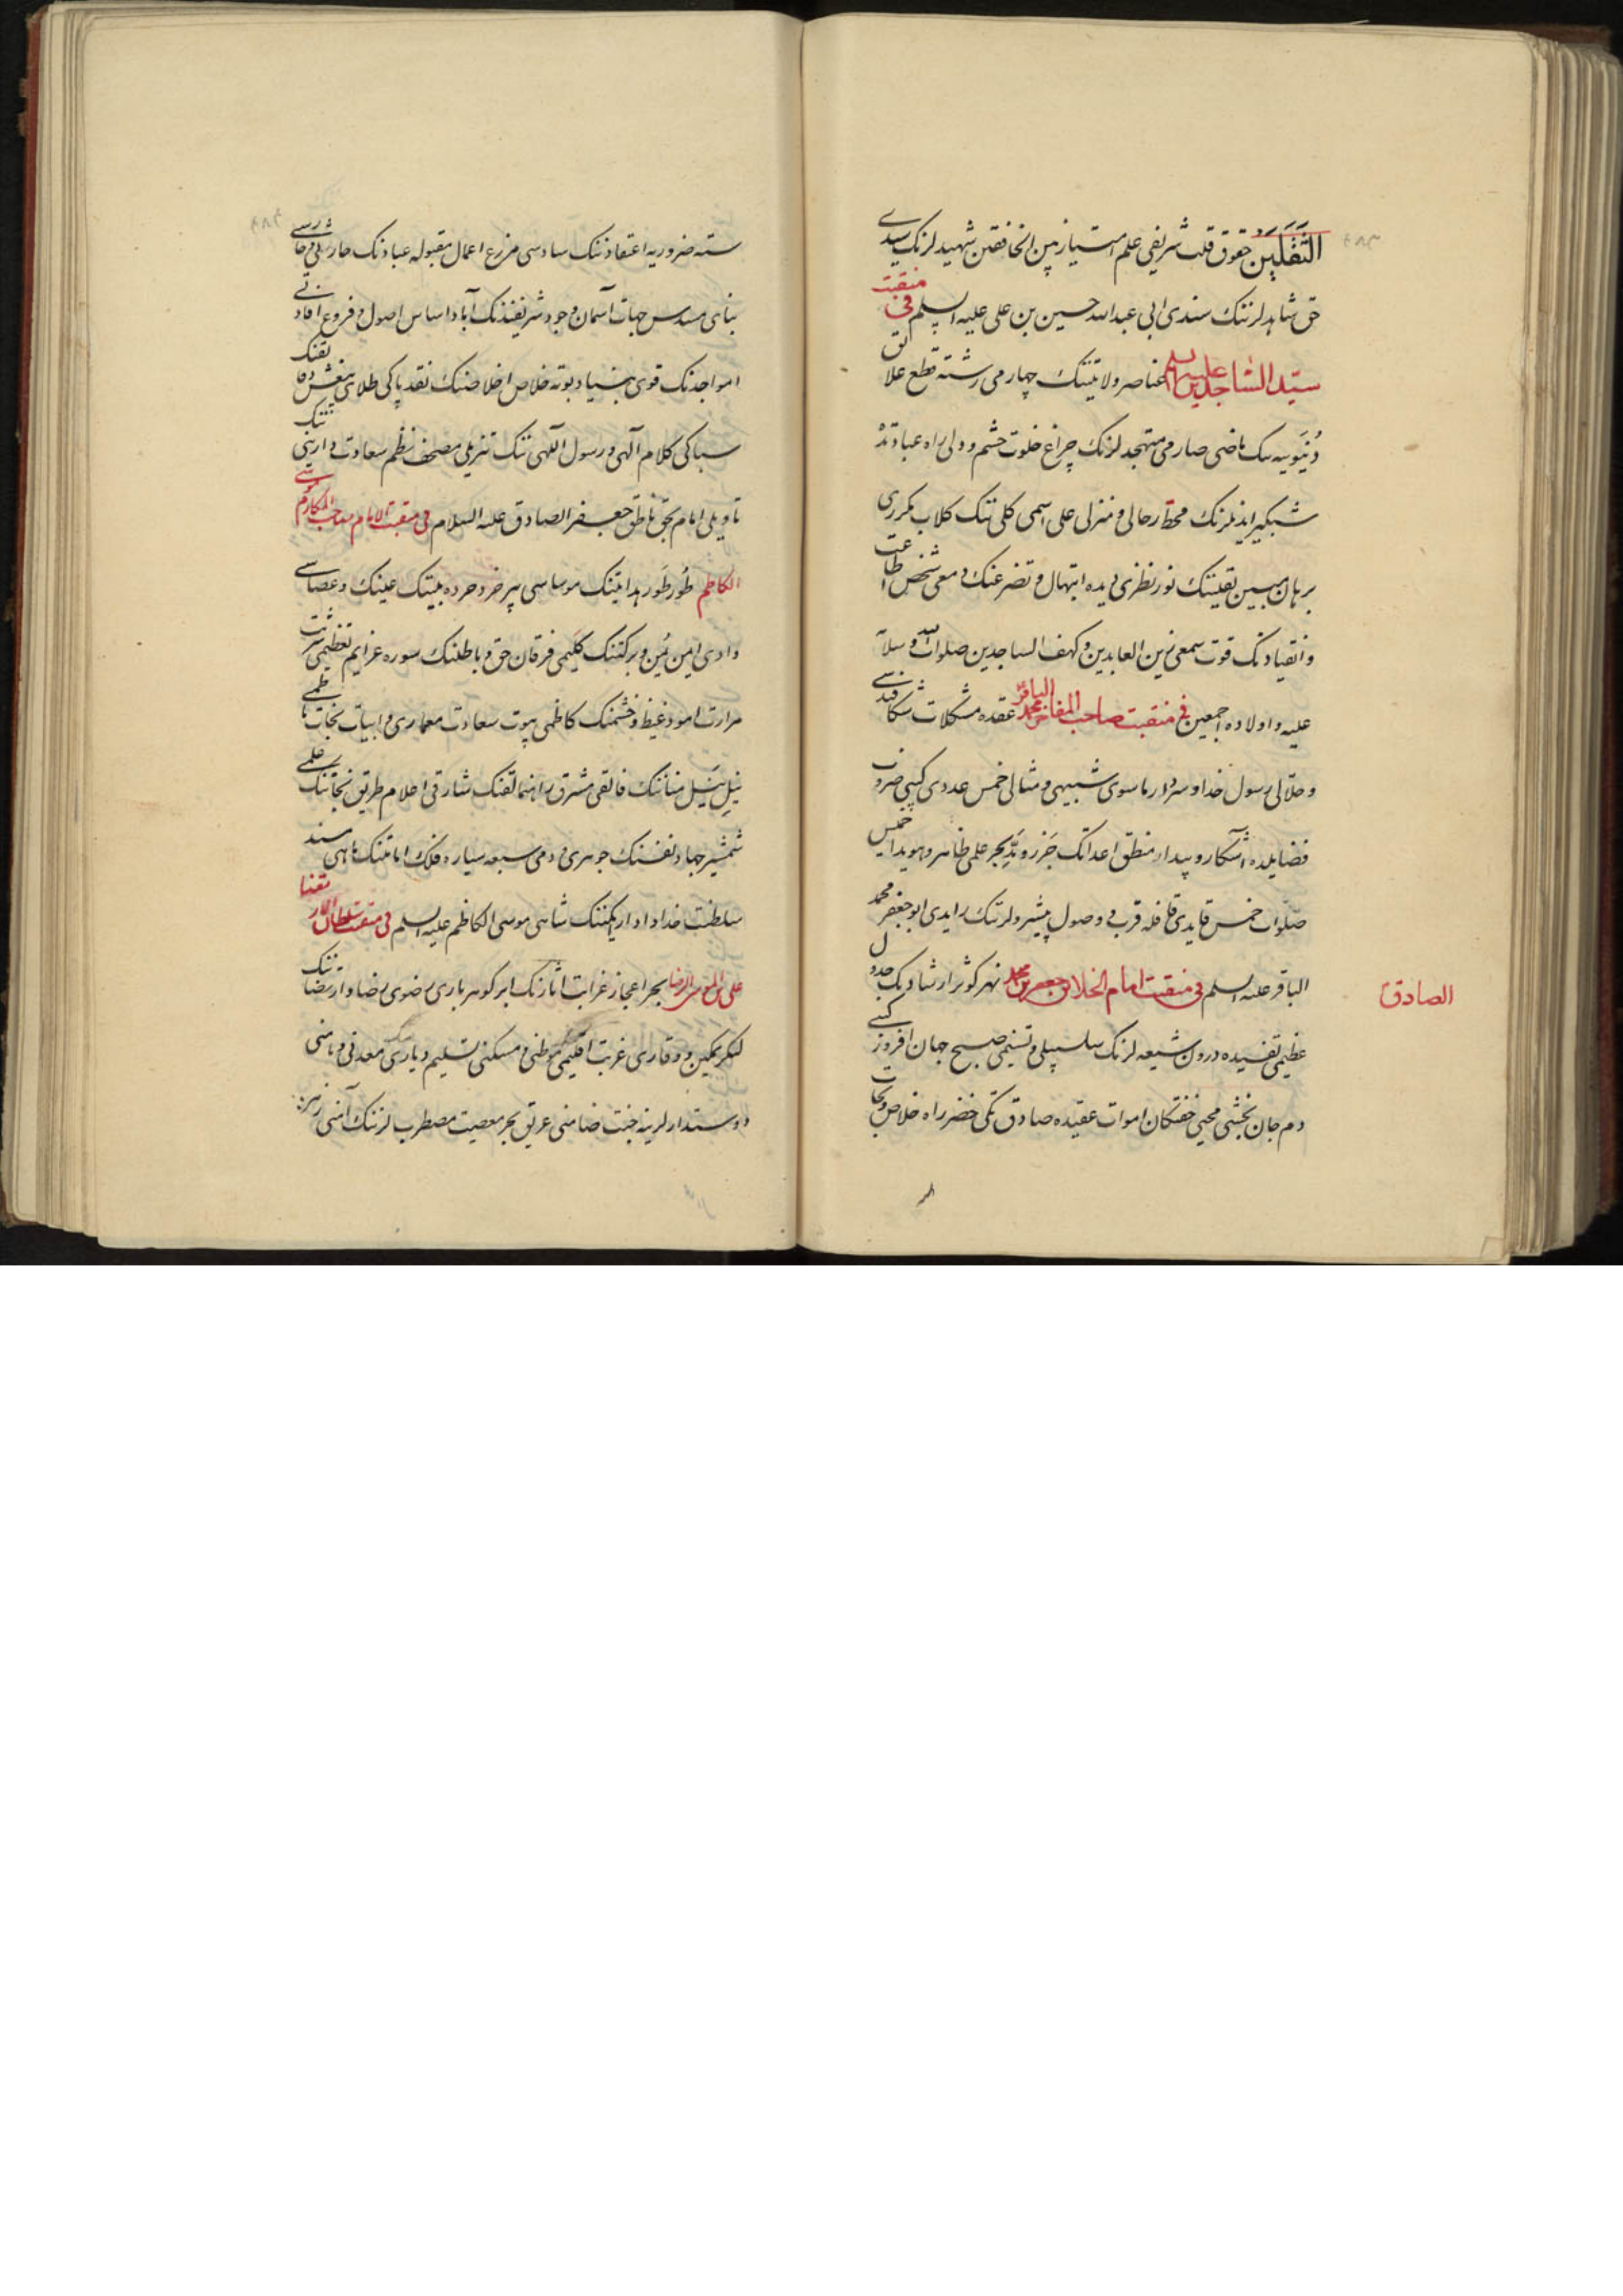 الثَّقَلَیْن حقوق قلب شریفی علم امتیاز بین الخافقین شهیدلرنک سیدی
حق شاهدلرننک سندی ابی عبدالله حسین بن علی علیه السلم فی منقبت
سیّد السّاجدین علیه السلم عناصر ولایتینک چهارمی رشته قطع علایق
دُنیَویه سک ماضی صارمی متهجدلرنک چراغ خلوت چشم و دلی راه عبادتده
شبکیر ایدنلرنک محط رحالی و منزلی علی اسمی کلی تنک کلاب مکرری
برهان مبین یقینتنک نور نظری دیده ابتهال و تضرعنک دمعی شخص اطاعت
و انقیادنک قوت سمعی زین العابدین و کهف الساجدین صلوات الله و سلامه
علیه و اولاده اجمعین فی منقبت صاحب المفاخر محمد الباقر عقده مشکلات شکافنده سی
و حلالی رسول خدا و سردار ماسوی شبیهی و مثالی خمس عددی کیبی ضروب
فضایلده آشکار و پیدار منطق اعدانک جَزر و مدّ بحر علمی ظاهر و هویدا خمس
صلوات خمس قایدی قافله قرب و وصول پیشرولرنک رایدی ابو جعفر محمد
الباقر علیه السلم فی منقبت امام الخلایق جعفر بن محمد نهر کوثر ارشادنک جدول
الصادق
عظیمی تفسیده درون شیعه لرنک سلسبیلی و تسنیمی صبح جهان افروز کیبی
دم جان بخشی محیی خفتکان اموات عقیده صادق تکی خضر راه خلاص و نجات
سته ضروریه اعتقادننک سادسی مزرع اعمال مقبوله عبادنک حارثی و حارسی
بنای مسدس جهات آسمان وجود شریفندنک آباد اساس اصول و فروع
امواجدنک قوی بنیاد بوته خلاص اخلاصنک نقد پاکی طلای
سباکی کلام آلهی و رسول اللهی تنک تنزیلی مصحف نظم سعادت دارینی تنک
تاویلی امام بحق ناطق جعفر الصادق علیه السلام فی منقبت الامام صاحب المکارم موسی
الکاظم طُور طَور هدایتنک موساسی پیر خرد خرده بینک عینک و عصاسی
وادی ایمن یُمن و برکتنک کلیمی فرقان حق و باطلنک سوره عزایم تعظیمی
مرارت امود غیظ و خشمنک کاظمی بیوت سعادت معماری و ابیات نجات ناظمی
نیل متاننک فائقی مشرق راهنمالقنک شارقی اعلام طریق نجاتنک علمی
شمشیر جهاد نفسنک جوهری و دمی سبعه سیاره فلک امامتنک ماهی مسند
سلطنت خداداد شاهی موسی الکاظم علیه السلم فی منقبت سلطان
علی بن الموسی الرضا بحر اعجاز غرابت اثارنک ابر کوهر باری رضوی رضا و ارتضا تنک
لنکر تمکین و وقاری غربت اقلیمی موطنی و مسکنی تسلیم دیاری معدنی و مامنی
دوستدارلرینه جنت ضامنی غریق بحر معصیت مضطرب لرننک آمنی